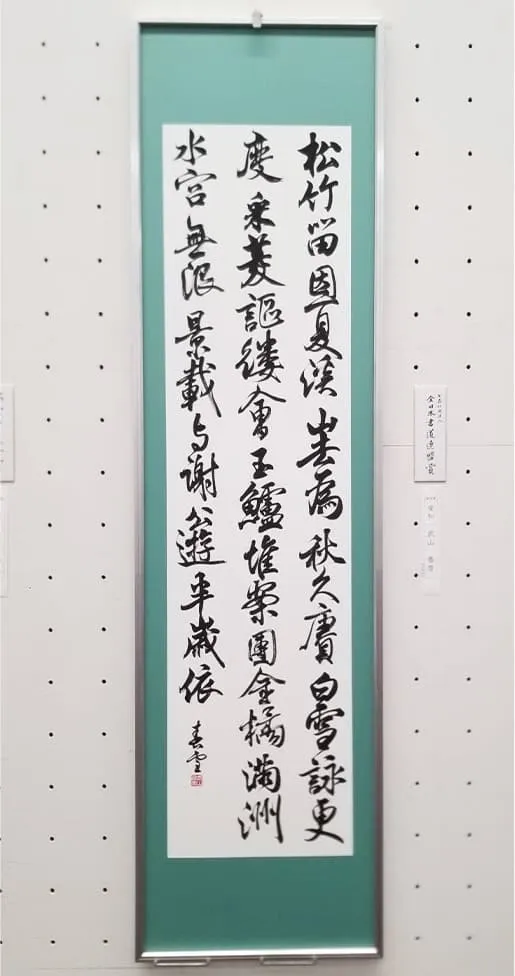 松竹留因夏溪山去為秋久賡白雪詠更
度采菱謳縷會玉鱸堆案團金橘滿洲
水宮無限景載与謝公遊半歲依
全日本書道連盟賞